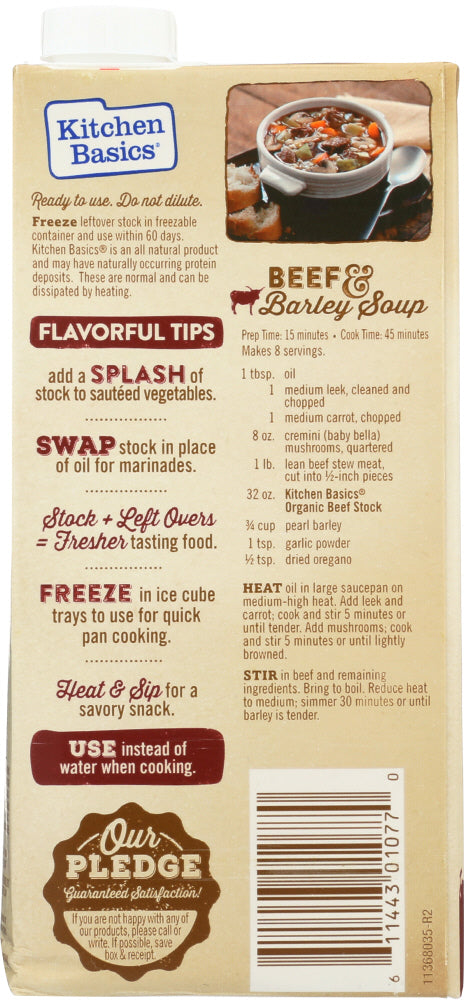 Kitchen
Basics®
Ready to use. Do not dilute.
Freeze leftover stock in freezable
container and use within 60 days.
Kitchen Basics® is an all natural product
and may have naturally occurring protein
deposits. These are normal and can be
dissipated by heating.
FLAVORFUL TIPS
add a SPLASH of
stock to sautéed vegetables.
SWAP stock in place
of oil for marinades.
Stock + Left Overs
= Fresher tasting food.
FREEZE in ice cube
trays to use for quick
pan cooking.
Heat & Sip for a
savory snack.
USE instead of
water when cooking.
Our
PLEDGE
Guaranteed Satisfaction!
If you are not happy with any of
our products, please call or
write. If possible, save
box & receipt.
BEEF &
Barley Soup
Prep Time: 15 minutes • Cook Time: 45 minutes
Makes 8 servings.
1 tbsp. oil
1 medium leek, cleaned and
chopped
1 medium carrot, chopped
8 oz. cremini (baby bella)
mushrooms, quartered
1 lb. lean beef stew meat,
cut into ½-inch pieces
32 oz. Kitchen Basics®
Organic Beef Stock
¾ cup pearl barley
1 tsp. garlic powder
½ tsp. dried oregano
HEAT oil in large saucepan on
medium-high heat. Add leek and
carrot; cook and stir 5 minutes or
until tender. Add mushrooms; cook
and stir 5 minutes or until lightly
browned.
STIR in beef and remaining
ingredients. Bring to boil. Reduce heat
to medium; simmer 30 minutes or until
barley is tender.
6 11443 01077 0
11368035-R2